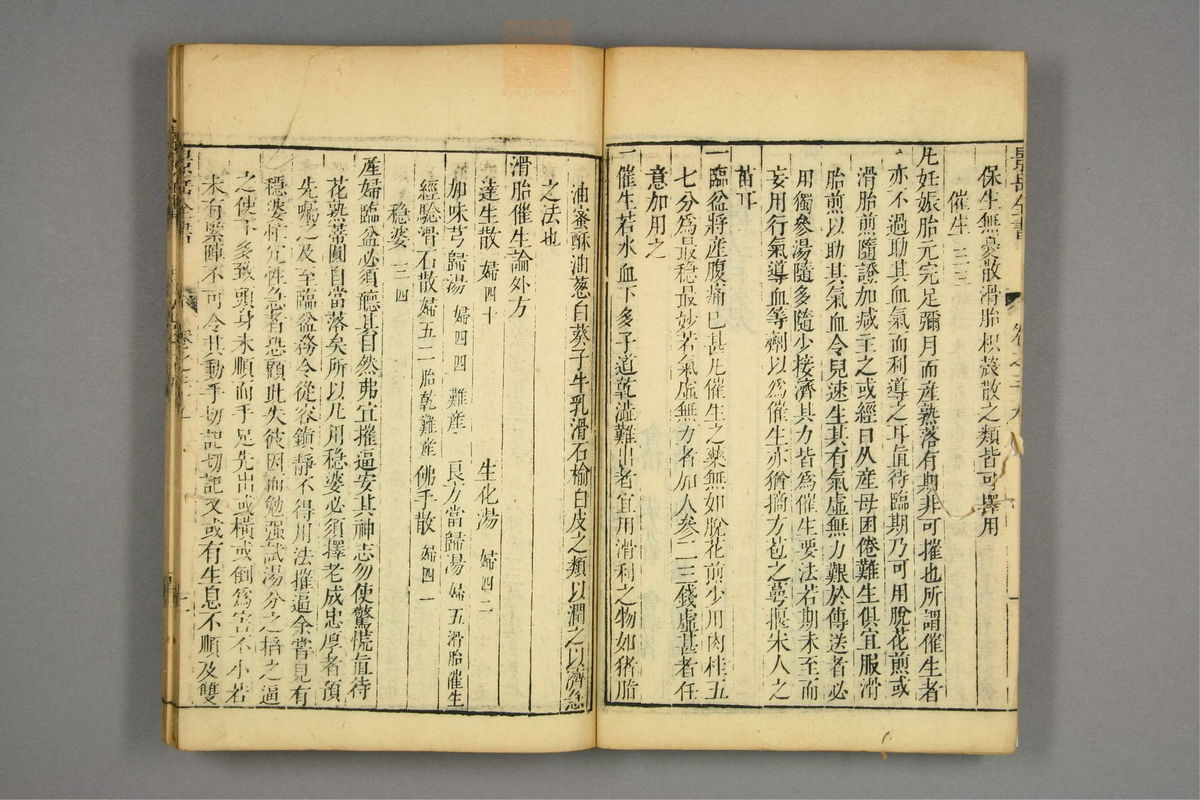 景岳全書 卷之三十九
保生無憂散滑胎枳殼散之類皆可擇用
催生 三三
凡妊娠胎元完足彌月而産熟落有期非可摧也所謂催生者
亦不過助其血氣而利導之耳直待臨期乃可用脫花煎或
滑胎煎隨證加減主之或經日久産母困倦難生俱宜服滑
胎煎以助其氣血令兒速生其有氣虛無力艱於傳送者必
用獨參湯隨多隨少接濟其力皆爲催生要法若期未至而
妄用行氣導血等劑以爲催生亦猶摘方苞之萼揠宋人之
苗耳
一臨盆將産腹痛已甚凡催生之藥無如脫花煎少用肉桂五
七分爲最穩最妙若氣虛無力者加人參二三錢虛甚者任
意加用之
一催生若水血下多子道乾澁難出者宜用滑利之物如猪脂
油蜜酥油葱白葵子牛乳滑石榆白皮之類以潤之以濟急
之法也
滑胎催生論外方
達生散 婦四十 生化湯 婦四二
加味芎歸湯 婦四四 難産 良方當歸湯 婦五 滑胎催生
經驗滑石散 婦五二 胎乾難産 佛手散 婦四一
穩婆 三四
産婦臨盆必須聽其自然弗宜摧逼安其神志勿使驚慌直待
花熟蒂圓自當落矣所以凡用穩婆必須擇老成忠厚者預
先囑之及至臨盆務令從容鎮靜不得用法摧逼余嘗見有
穩婆忙冗性急者恐顧此失彼因而勉强試湯分之掐之逼
之使下多致頭身未順而手足先出或橫或倒爲害不小若
未有緊陣不可令其動手切記切記又或有生息不順及雙
景岳全書